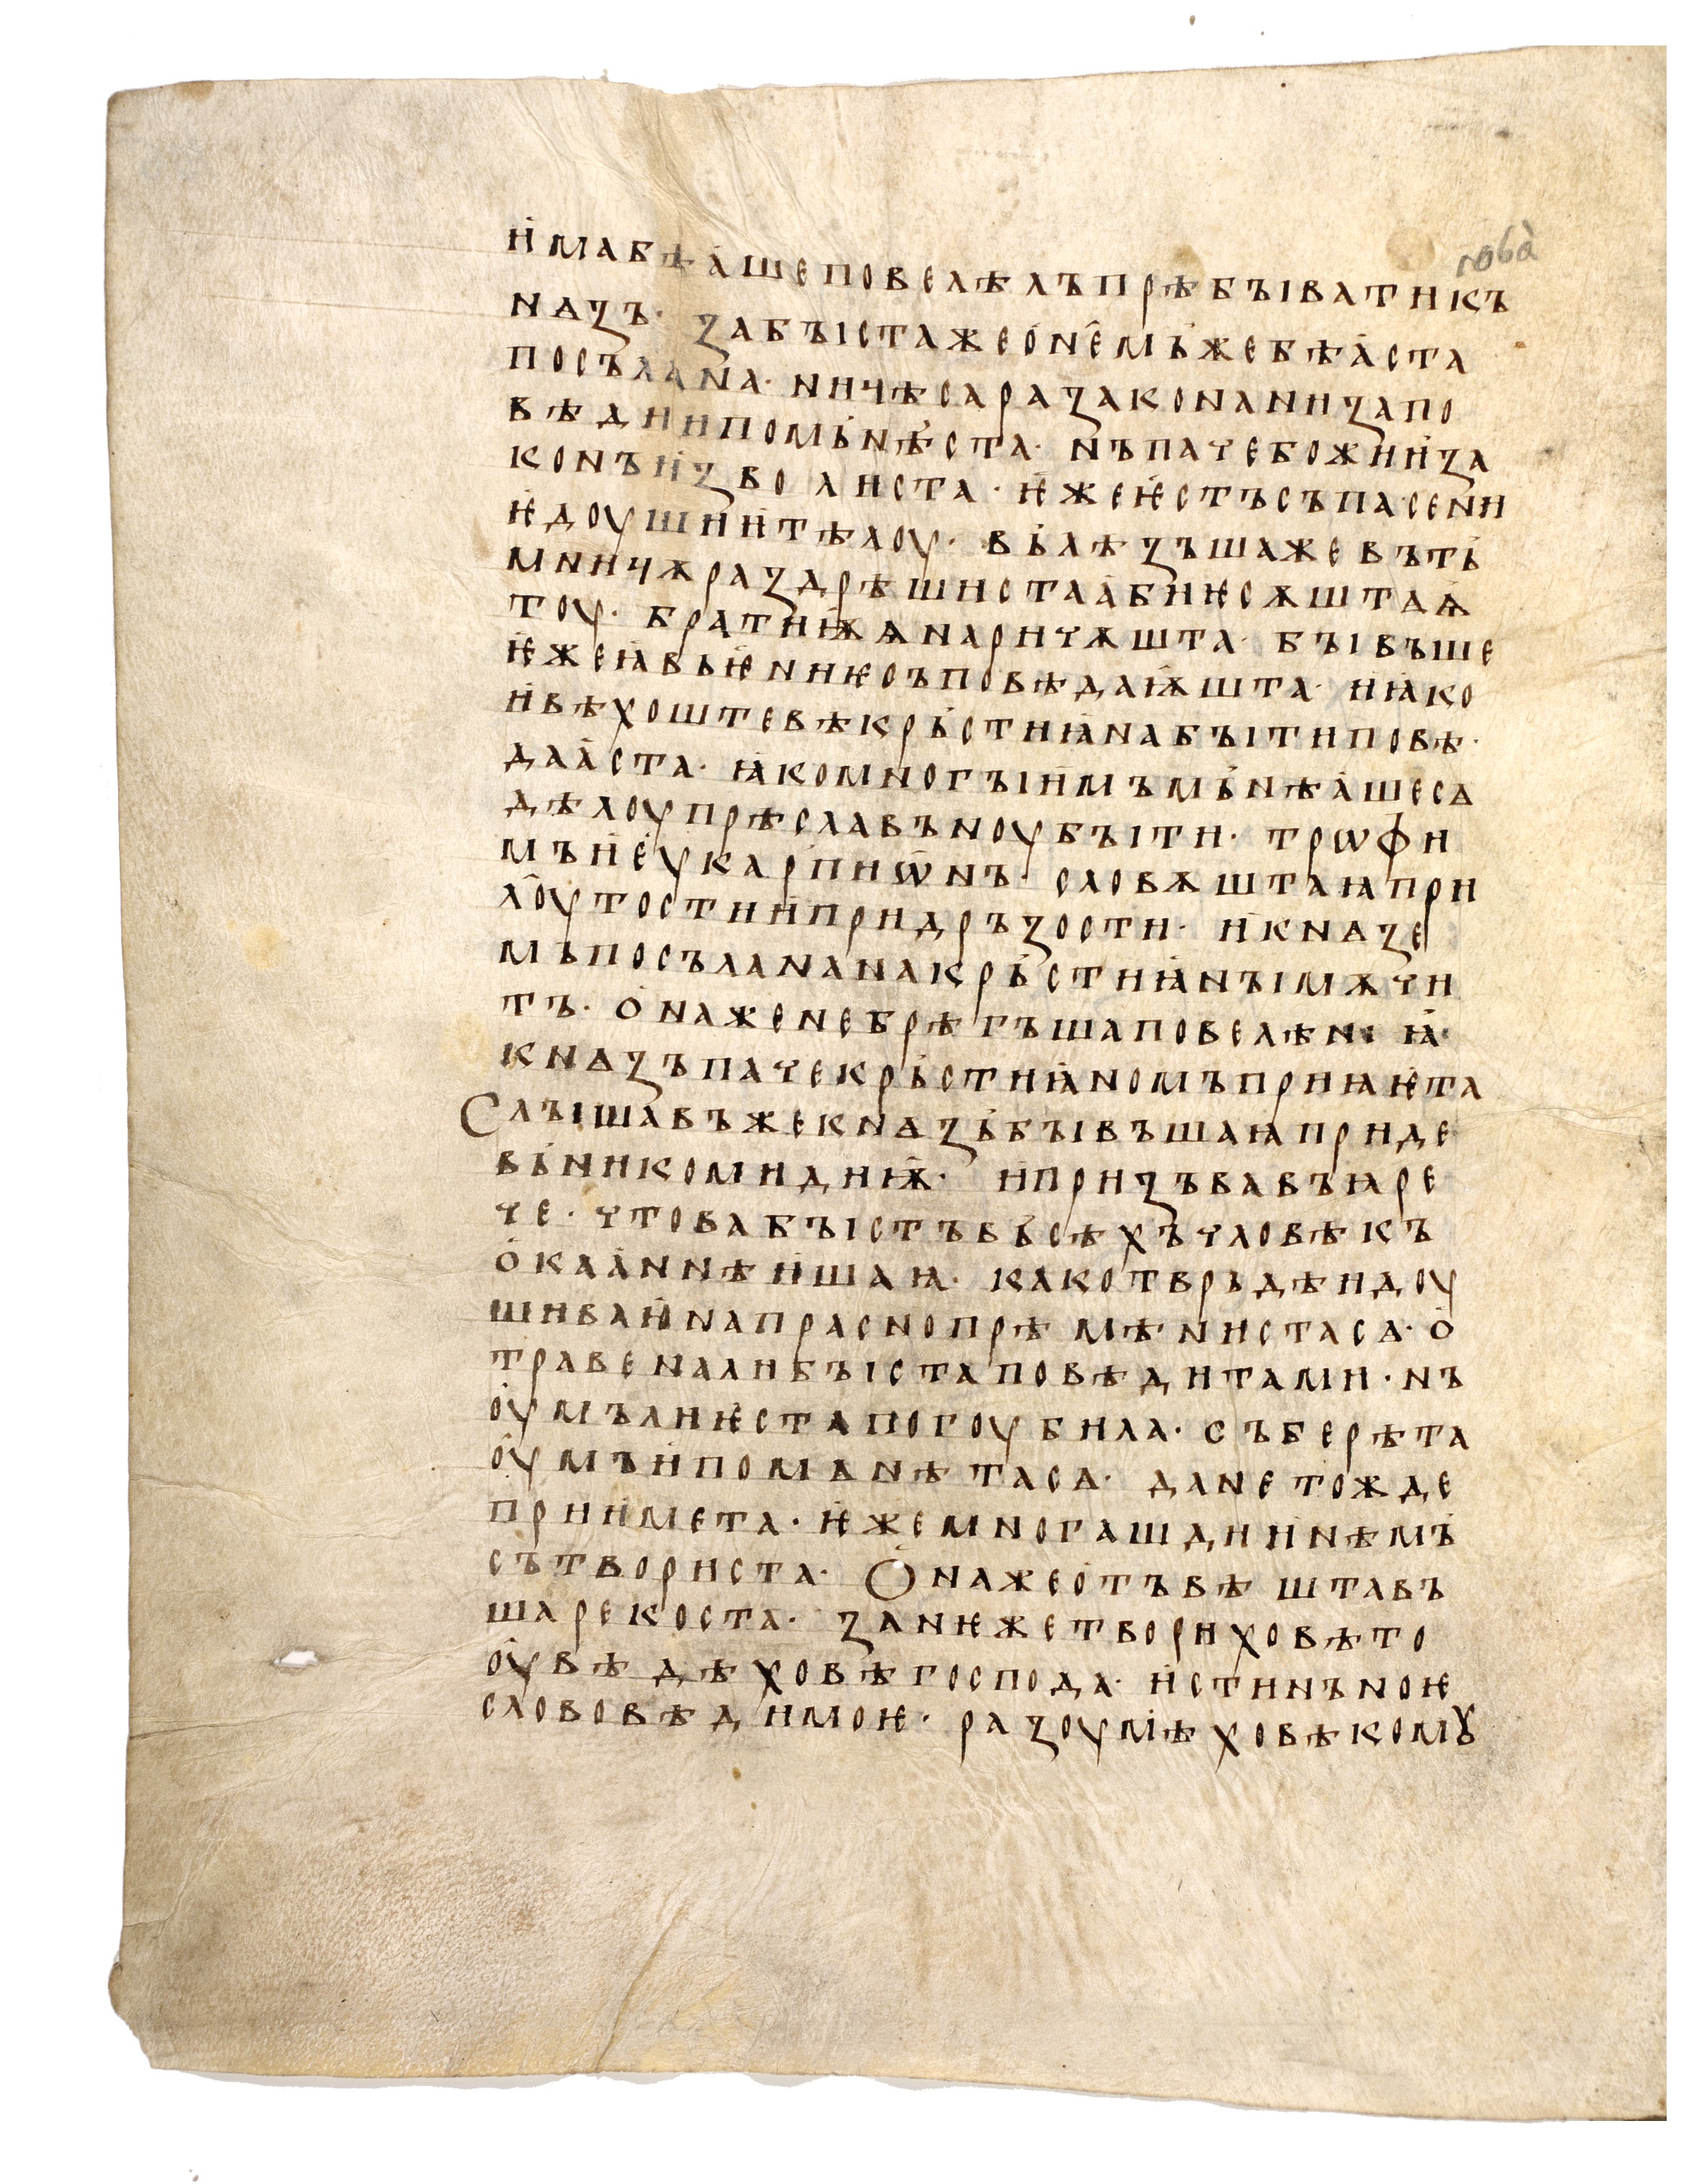 и҆мабѣа҆шеповелѣлъпрѣбꙑватикъ
нѧꙁъ· ꙁабꙑстажео҆не҆мь҆жебѣа҆ста
посълана· ничѣсаразаконаниꙁапо
вѣдиипомь҆нѣ҆ста· нъпачебожии҆ꙁа
конъи҆ꙁволиста· ѥ҆жеѥ҆стъсъпасени
ѥ҆доушии҆тѣлоу· вь҆лѣꙁъшажевъть҆
мничѫраꙁдрѣшистаа҆биѥсѫштаѧ҆
тоу· братиѭ҆ѩнаричѫшта· бꙑвъше
ѥ҆жеꙗ҆вь҆ѥниѥсъповѣдаѭ҆шта· иꙗ҆ко
и҆вѣхоштевѣкрь҆стиꙗ҆набꙑтиповѣ·
даа҆ста· ꙗ҆комногꙑи҆мъмь҆нѣа҆шесѧ
дѣлоупрѣславъноубꙑти· трѡфи
мъи҆еу҆карпиѡ҆нъ· словѫштаꙗпри
лоу҆тостии҆придръꙁости· и҆кнѧꙁе
мъпосълананакрь҆стиꙗ҆нꙑмѫчи
тъ· о҆наженебрѣгъшаповелѣни ꙗ҆·
кнѧꙁъпачекрь҆стиꙗ҆номъприꙗѥ҆та
Слꙑшавъжекнѧꙁь҆бꙑвъшаꙗприде
вь҆никомидиѭ҆· и҆приꙁъвавъꙗре
че· чтовабꙑстъвь҆сѣхъчловѣкъ
о҆каа҆ннѣи҆шаꙗ· какотврьдѣидоу
шиваю҆напраснопрѣмѣнистасѧ· о҆
травеналибꙑстаповѣдитами· нъ
оу҆мълиѥ҆стапогоубила· съберѣта
оу҆мъи҆помѧнѣтасѧ· данетожде
прии҆мета· ѥ҆жемногашдии҆нѣмъ҆
сътвориста· О҆нажео҆тъвѣштавъ
шарекоста· ꙁанѥжетвориховѣто
оу҆вѣдѣховѣгоспода· и҆стинъноѥ
слововѣдимоѥ· раꙁоумѣховѣкомꙋ